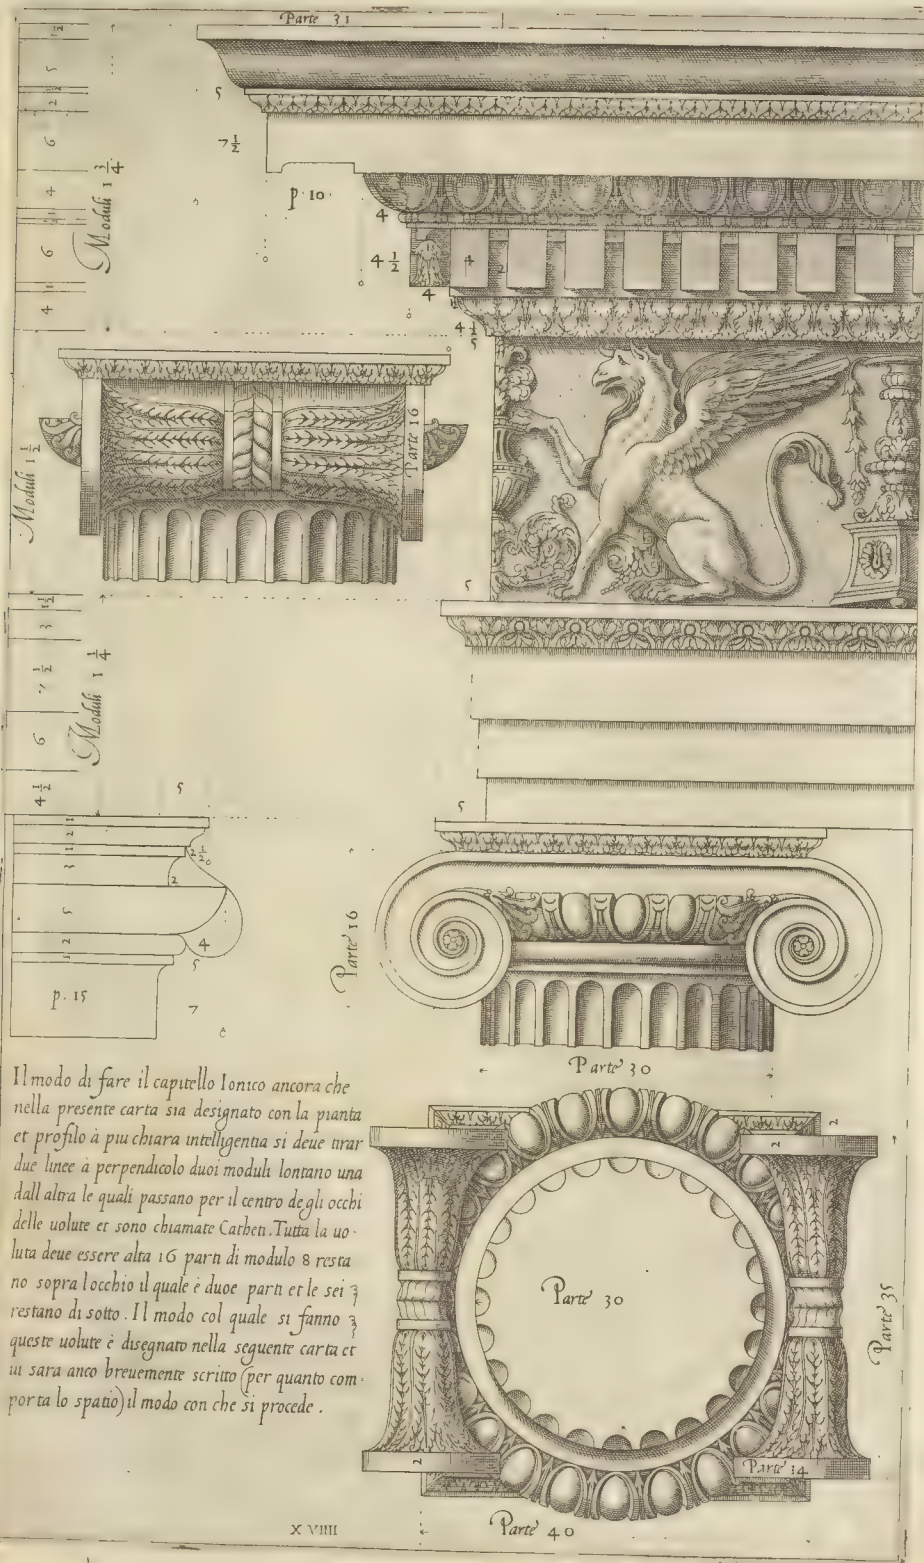 Parte 31
1/2
5
1/2
2
6
4
1
6
1
4
Moduli 1 3/4
5
7 1/2
p. 10
4
4 1/2
4
2
4
4 1/2
5
Parte 16
Moduli 1 1/2
5
1 1/2
3
7 1/2
6
4 1/2
Moduli 1 1/4
5
5
1
2
1
3
5
2
1
2 1/2
2
4
5
7
p. 15
Parte 16
Parte 30
Il modo di fare il capitello Ionico ancora che
nella presente carta sia designato con la pianta
et profilo à piu chiara intelligentia si deue tirar
due linee à perpendicolo duoi moduli lontano una
dall altra le quali passano per il centro de gli occhi
delle uolute et sono chiamate Catheti. Tutta la uo-
luta deue essere alta 16 parti di modulo 8 resta
no sopra locchio il quale è duoe parti et le sei
restano di sotto. Il modo col quale si fanno
queste uolute è disegnato nella seguente carta et
ui sara anco breuemente scritto (per quanto com-
porta lo spatio) il modo con che si procede.
2
2
Parte 30
Parte 35
2
Parte 14
Parte 40
X VIIII